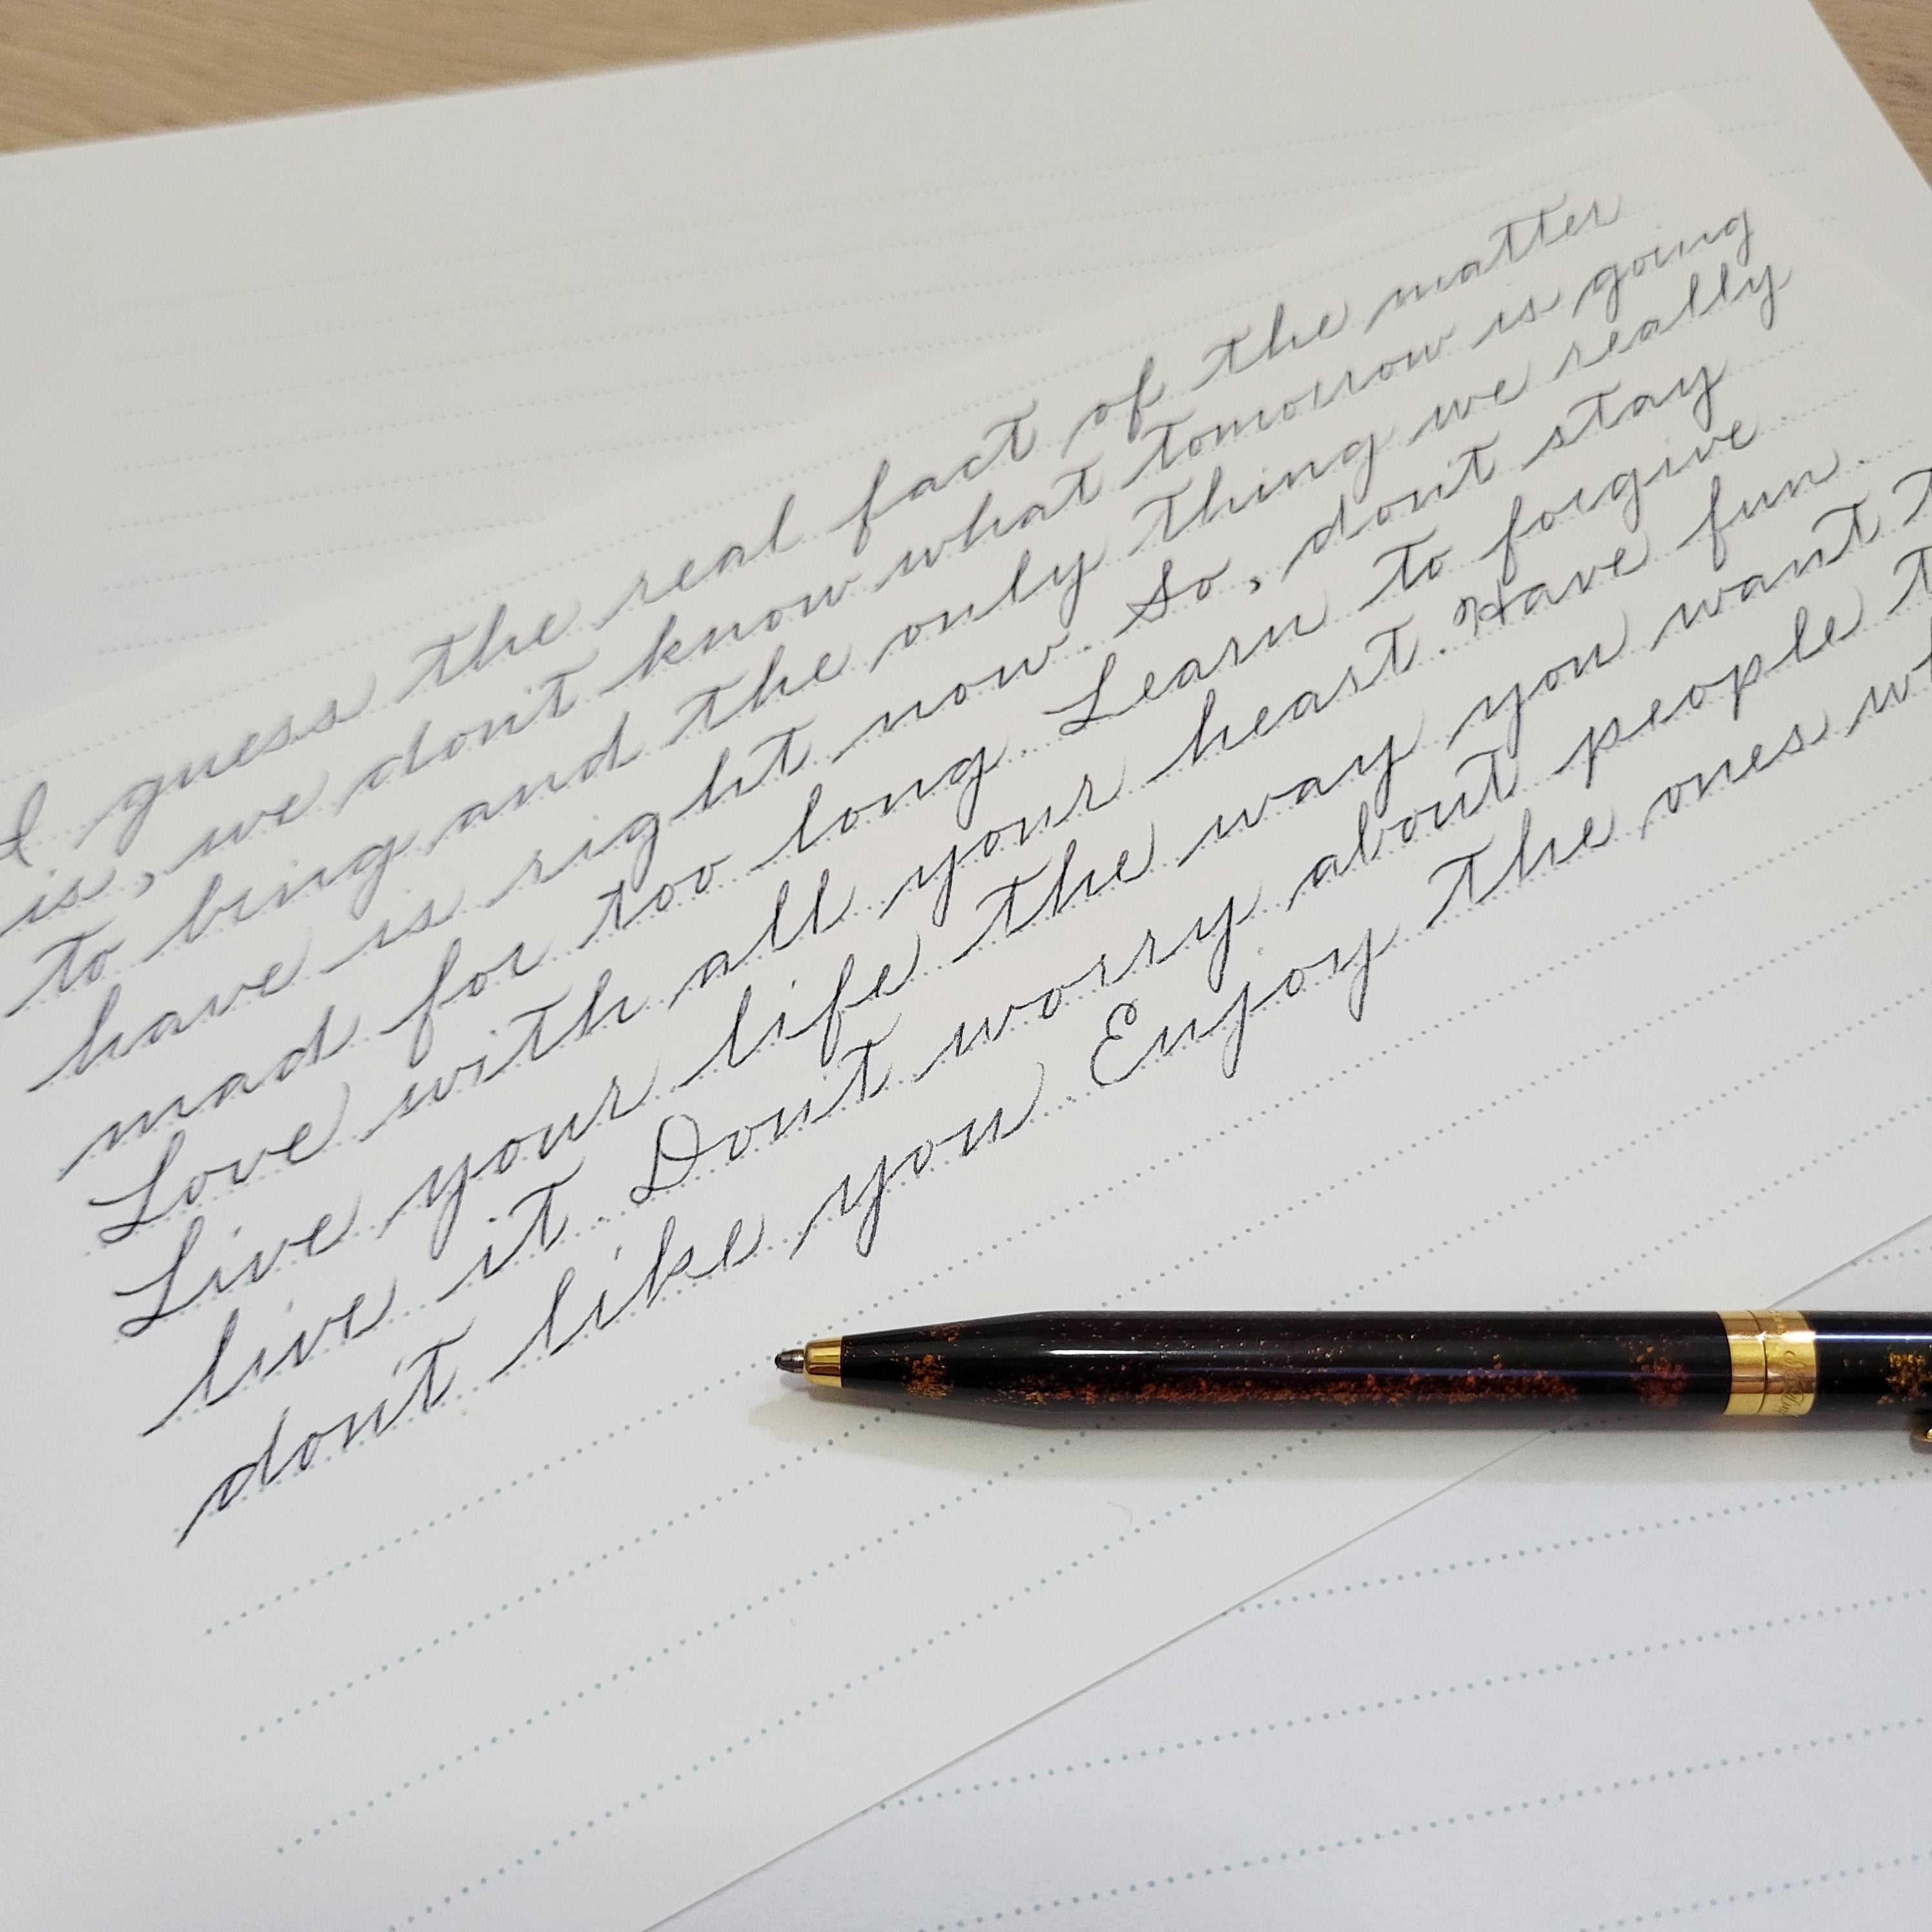 I guess the real fact of the matter
is, we don't know what tomorrow is going
to bring and the only thing we really
have is right now. So, don't stay
mad for too long. Learn to forgive.
Love with all your heart. Have fun.
Live your life the way you want
live it. Don't worry about people
don't like you. Enjoy the ones